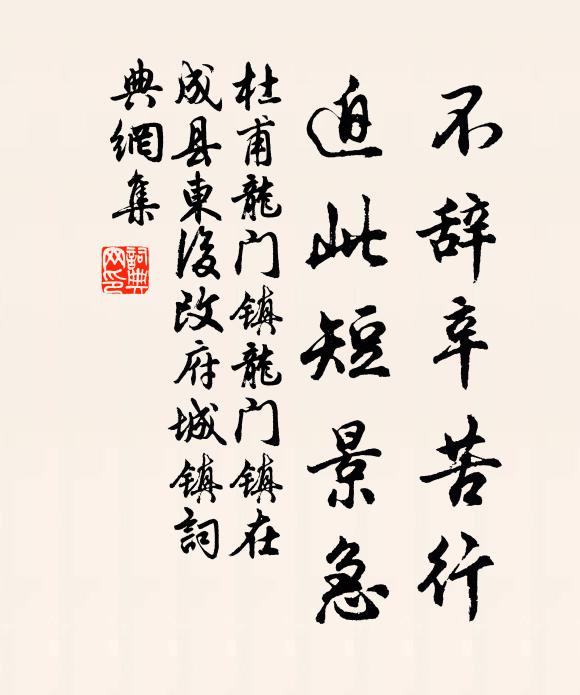 不辞辛苦行
迫此短景急
杜甫龍门镇龍门镇在
成县東後改府城镇詞
典網集
詞典
网印